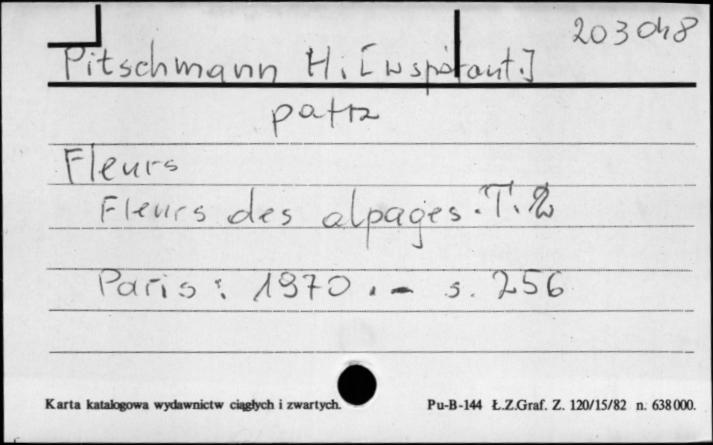 203048
Pitschmann H. [współaut.]
patrz
Fleurs
Fleurs des alpages. T. 2
Paris : 1970 . - s. 256
Karta katalogowa wydawnictw ciągłych i zwartych.
Pu-B-144 Ł.Z.Graf. Z. 120/15/82 n. 638000.